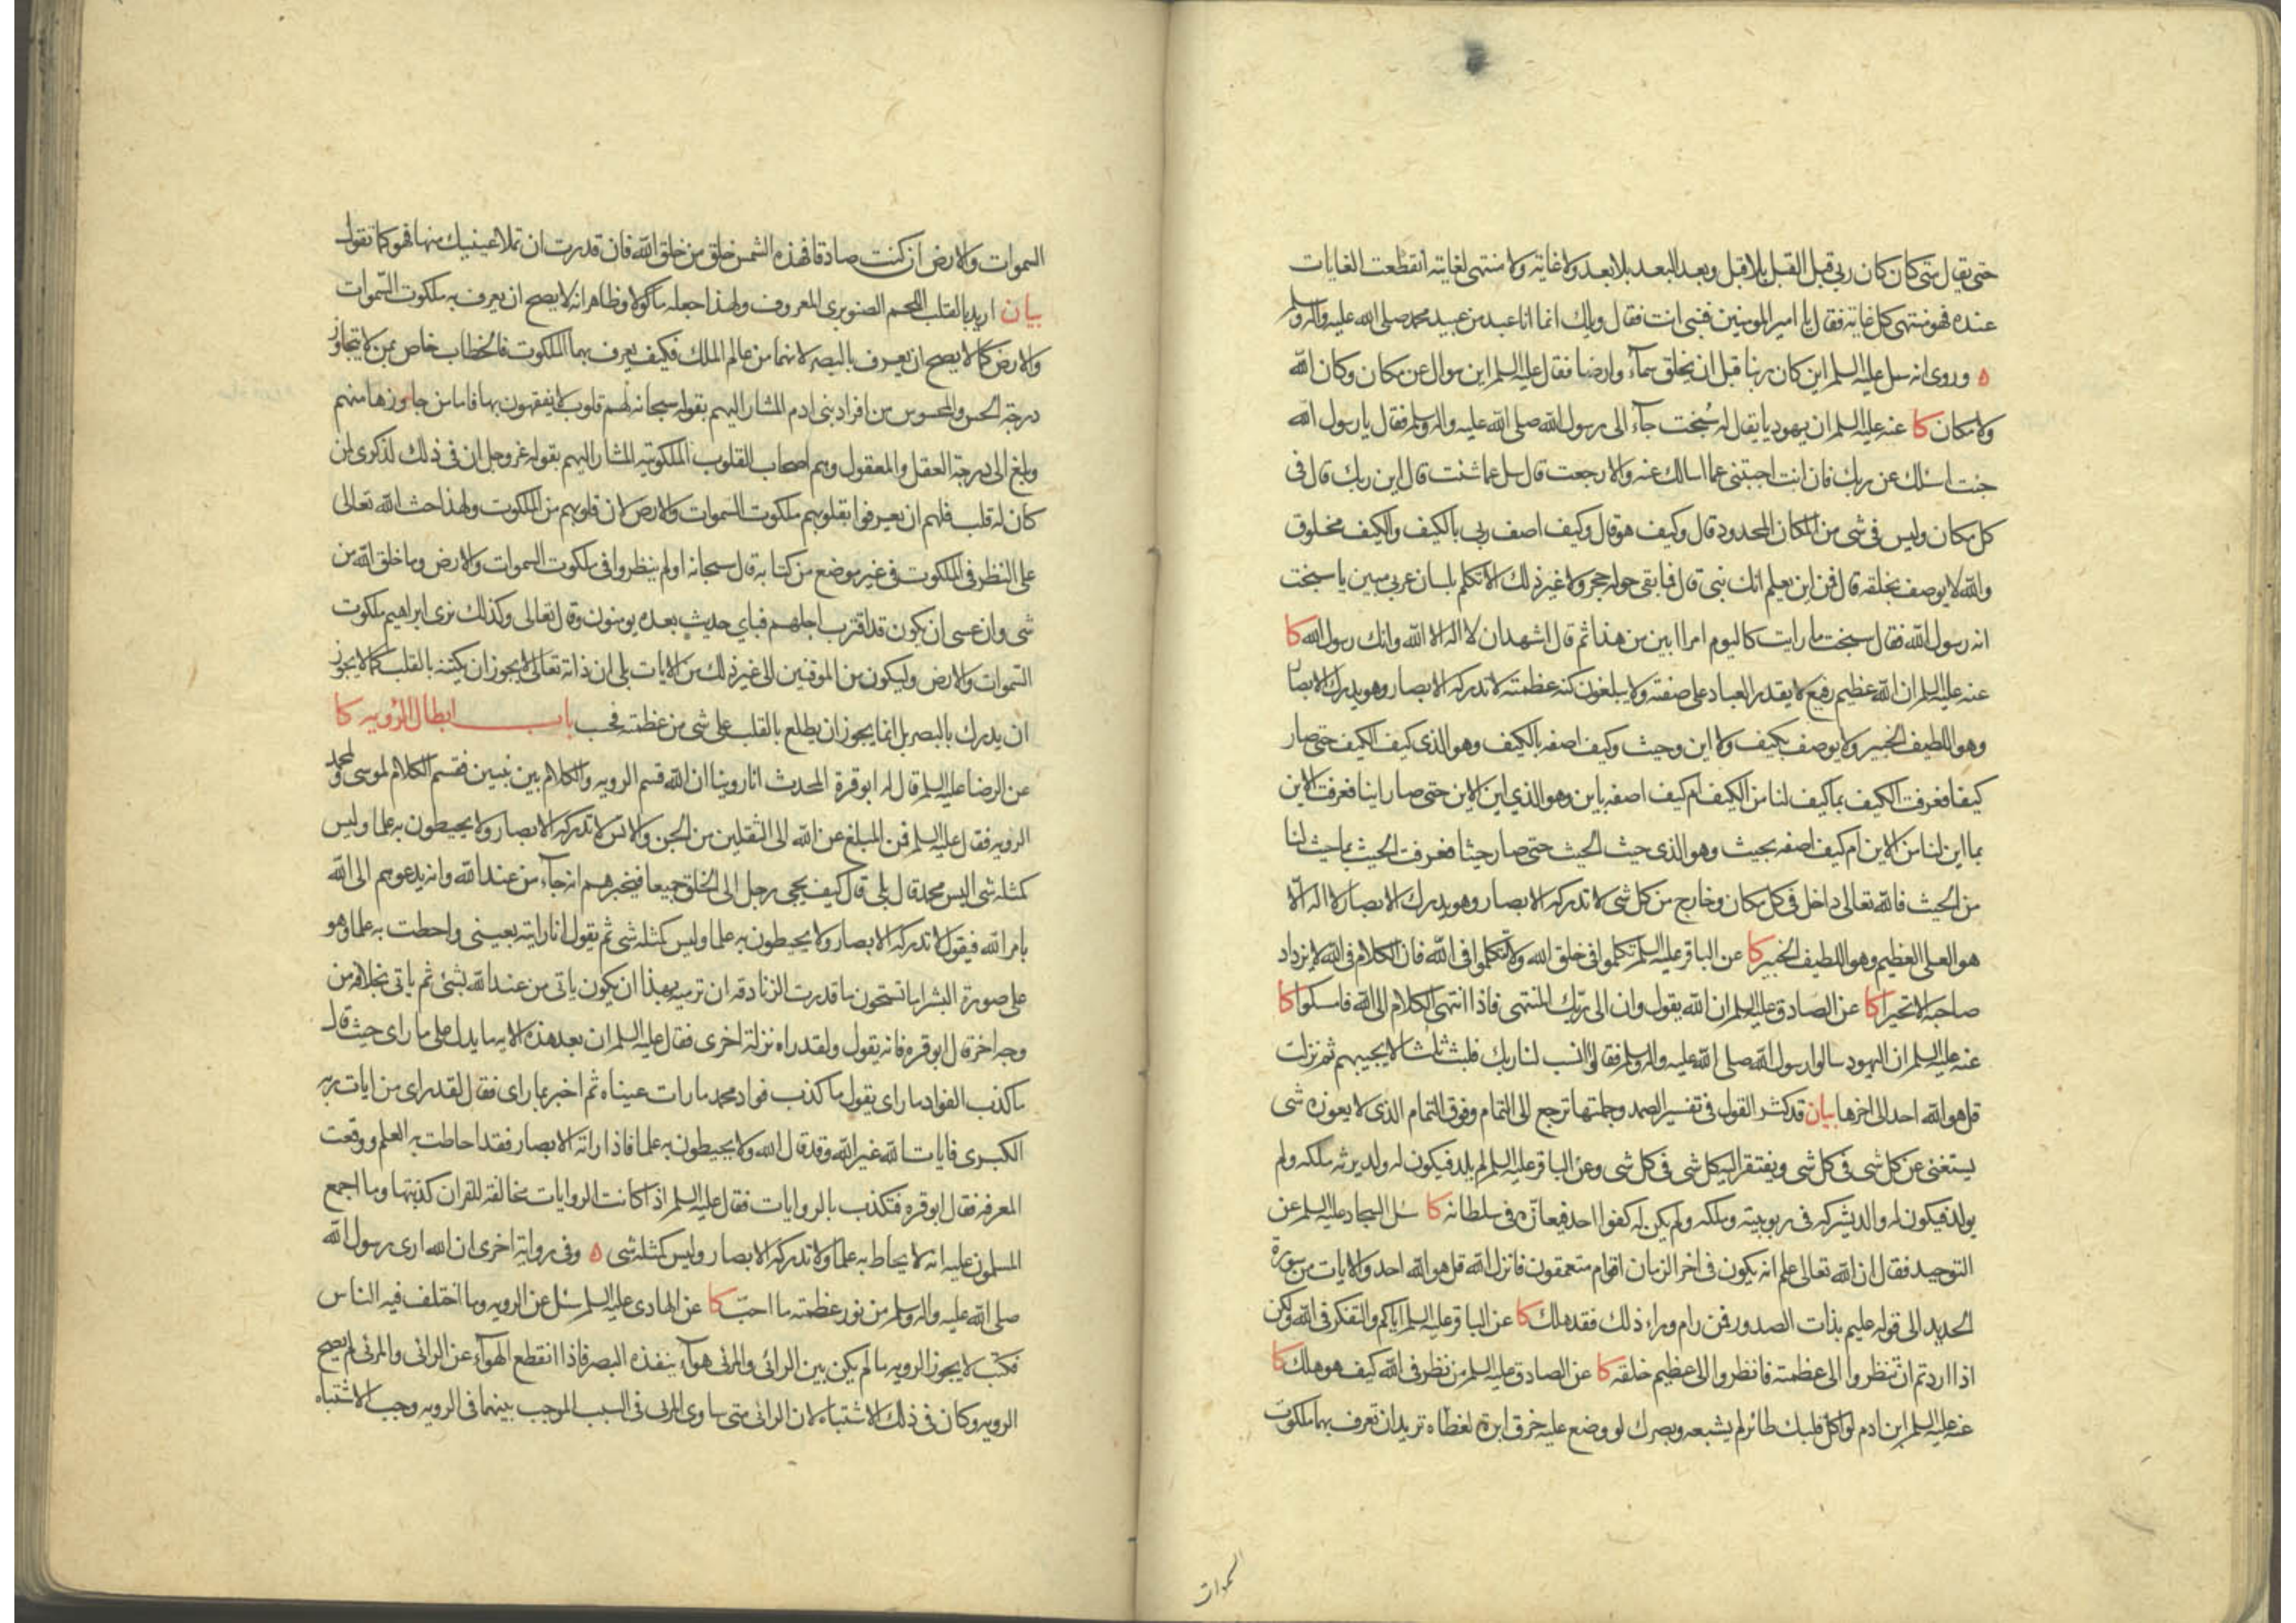 حتى يقال متى كان كان ربي قبل القبل بلا قبل وبعد البعد بلا بعد ولا غاية ولا منتهى لغايته انقطعت الغايات
عنده فهو منتهى كل غاية فقال يا امير المومنين فنبي انت فقال ويلك انما انا عبد من عبيد محمد صلى الله عليه واله وسلم
ه وروى انه سل عليه السلم اين كان ربنا قبل ان يخلق سمآء وارضا فقال عليه السلم اين سوال عن مكان وكان الله
ولا مكان كا عنه عليه السلم ان يهوديا يقال له سُبخت جآء الى رسول الله صلى الله عليه واله وسلم فقال يا رسول الله
جئت اسئلك عن ربك فان انت اجبتني عما اسالك عنه والا رجعت قال سل عما شئت قال اين ربك قال في
كل مكان وليس في شئ من المكان المحدود قال وكيف هو قال وكيف اصف ربي بالكيف والكيف مخلوق
والله لا يوصف بخلقه قال فمن اين يعلم انك نبي قال فما بقى حوله حجر ولا غير ذلك الا تكلم بلسان عربي مبين يا سبخت
انه رسول الله فقال سبخت ما رايت كاليوم امرا ابين من هذا ثم قال اشهد ان لا اله الا الله وانك رسول الله كا
عنه عليه السلم ان الله عظيم رفيع لا يقدر العباد على صفته ولا يبلغون كنه عظمته لا تدركه الابصار وهو يدرك الابصار
وهو اللطيف الخبير ولا يوصف بكيف ولا اين وحيث وكيف اصفه بالكيف وهو الذي كيف الكيف حتى صار
كيفا فعرفت الكيف بما كيف لنا من الكيف ام كيف اصفه باين وهو الذي اين الاين حتى صار اينا فعرفت الاين
بما اين لنا من الاين ام كيف اصفه بحيث وهو الذى حيث الحيث حتى صار حيثا فعرفت الحيث بما حيث لنا
من الحيث فالله تعالى داخل في كل مكان وخارج من كل شئ لا تدركه الابصار وهو يدرك الابصار لا اله الّا
هو العلى العظيم وهو اللطيف الخبير كا عن الباقر عليه السلم تكلموا في خلق الله ولا تتكلموا في الله فان الكلام في الله لا يزداد
صاحبه الا تحيرا كا عن الصادق عليه السلم ان الله يقول وان الى ربّك المنتهى فاذا انتهى الكلام الى الله فامسكوا كا
عنه عليه السلم ان اليهود سالوا رسول الله صلى الله عليه واله وسلم فقالوا انسب لنا ربك فلبث ثلثا لا يجيبهم ثم نزلت
قل هو الله احد الى اخرها بيان قد كثر القول في تفسير الصمد وجلتها ترجع الى التمام وفوق التمام الذى لا يعوزه شئ
يستغنى عن كل شئ في كل شئ ويفتقر اليه كل شئ في كل شئ وعن الباقر عليه السلم لم يلد فيكون له ولد يرثه ملكه ولم
يولد فيكون له والد يشركه في ربوبيته وملكه ولم يكن له كفوا احد فيعازّه في سلطانه كا سُل السجاد عليه السلم عن
التوحيد فقال ان الله تعالى علم انه يكون في اخر الزمان اقوام متعمقون فانزل الله قل هو الله احد والايات من سورة
الحديد الى قوله عليم بذات الصدور فمن رام وراء ذلك فقد هلك كا عن الباقر عليه السلم اياكم والتفكر في الله ولكن
اذا اردتم ان تنظروا الى عظمته فانظروا الى عظيم خلقه كا عن الصادق عليه السلم من نظر في الله كيف هو هلك كا
عنه عليه السلم ابن ادم لو اكل قلبك طائر لم يشبعه وبصرك لو وضع عليه خرق ابرة لغطاه تريد ان تعرف بهما ملكوت
السموات
السموات والارض ان كنت صادقا فهذه الشمس خلق من خلق الله فان قدرت ان تملا عينيك منها فهو كما تقول
بيان اريد بالقلب اللحم الصنوبرى المعروف ولهذا جعله ماكولا وظاهر انه لا يصح ان يعرف به ملكوت السموات
والارض كما لا يصح ان يعرف بالبصر لانهما من عالم الملك فكيف يعرف بهما الملكوت فالخطاب خاص بمن لا يتجاوز
درجة الحس والمحسوس من افراد بنى ادم المشار اليهم بقوله سبحانه لهم قلوب لا يفقهون بها فاما من جاوزها منهم
وبلغ الى درجة العقل والمعقول وهم اصحاب القلوب الملكوتيه المشار اليهم بقوله عز وجل ان في ذلك لذكرى لمن
كان له قلب فلهم ان يعرفوا بقلوبهم ملكوت السموات والارض لان قلوبهم من الملكوت ولهذا حث الله تعالى
على النظر في الملكوت في غير موضع من كتابه قال سبحانه اولم ينظروا في ملكوت السموات والارض وما خلق الله من
شئ وان عسى ان يكون قد اقترب اجلهم فباي حديث بعده يومنون وقال تعالى وكذلك نرى ابراهيم ملكوت
السموات والارض وليكون من الموقنين الى غير ذلك من الايات بلى ان ذاته تعالى لا يجوز ان يكتنه بالقلب كما لا يجوز
ان يدرك بالبصر بل انما يجوز ان يطلع بالقلب على شئ من عظمته فحسب باب ابطال الرؤيه كا
عن الرضا عليه السلم قال له ابو قرة المحدث انا روينا ان الله قسم الرويه والكلام بين نبيين فقسم الكلام لموسى ولمحمد
الرويه فقال عليه السلم فمن المبلغ عن الله الى الثقلين من الجن والانس لا تدركه الابصار ولا يحيطون به علما وليس
كمثله شئ اليس محمد قال بلى قال كيف يجئ رجل الى الخلق جميعا فيخبرهم انه جآء من عند الله وانه يدعوهم الى الله
بامر الله فيقول لا تدركه الابصار ولا يحيطون به علما وليس كمثله شئ ثم يقول انا رايته بعيني واحطت به علما وهو
على صورة البشر اما تستحون ما قدرت الزنادقه ان ترميه بهذا ان يكون ياتى من عند الله بشئ ثم ياتى بخلافه من
وجه اخر قال ابو قره فانه يقول ولقد راه نزلة اخرى فقال عليه السلم ان بعد هذه الايه ما يدل على ما راى حيث قال
ما كذب الفواد ما راى يقول ما كذب فواد محمد ما رات عيناه ثم اخبر بما راى فقال لقد راى من ايات ربه
الكبرى فايات الله غير الله وقد قال الله ولا يحيطون به علما فاذا راته الابصار فقد احاطت به العلم ووقعت
المعرفه فقال ابو قره فتكذب بالروايات فقال عليه السلم اذا كانت الروايات مخالفة للقران كذبتها وما اجمع
المسلمون عليه انه لا يحاط به علما ولا تدركه الابصار وليس كمثله شئ ه وفي رواية اخرى ان الله ارى رسول الله
صلى الله عليه واله وسلم من نور عظمته ما احبّ كا عن الهادى عليه السلم سئل عن الرويه وما اختلف فيه الناس
فكتب لا يجوز الرويه ما لم يكن بين الرائى والمرئى هوآء ينفذه البصر فاذا انقطع الهوآء عن الرائى والمرئى لم يصح
الرويه وكان في ذلك الاشتباه لان الرائى متى ساوى المرئى في السبب الموجب بينهما في الرويه وجب الاشتباه